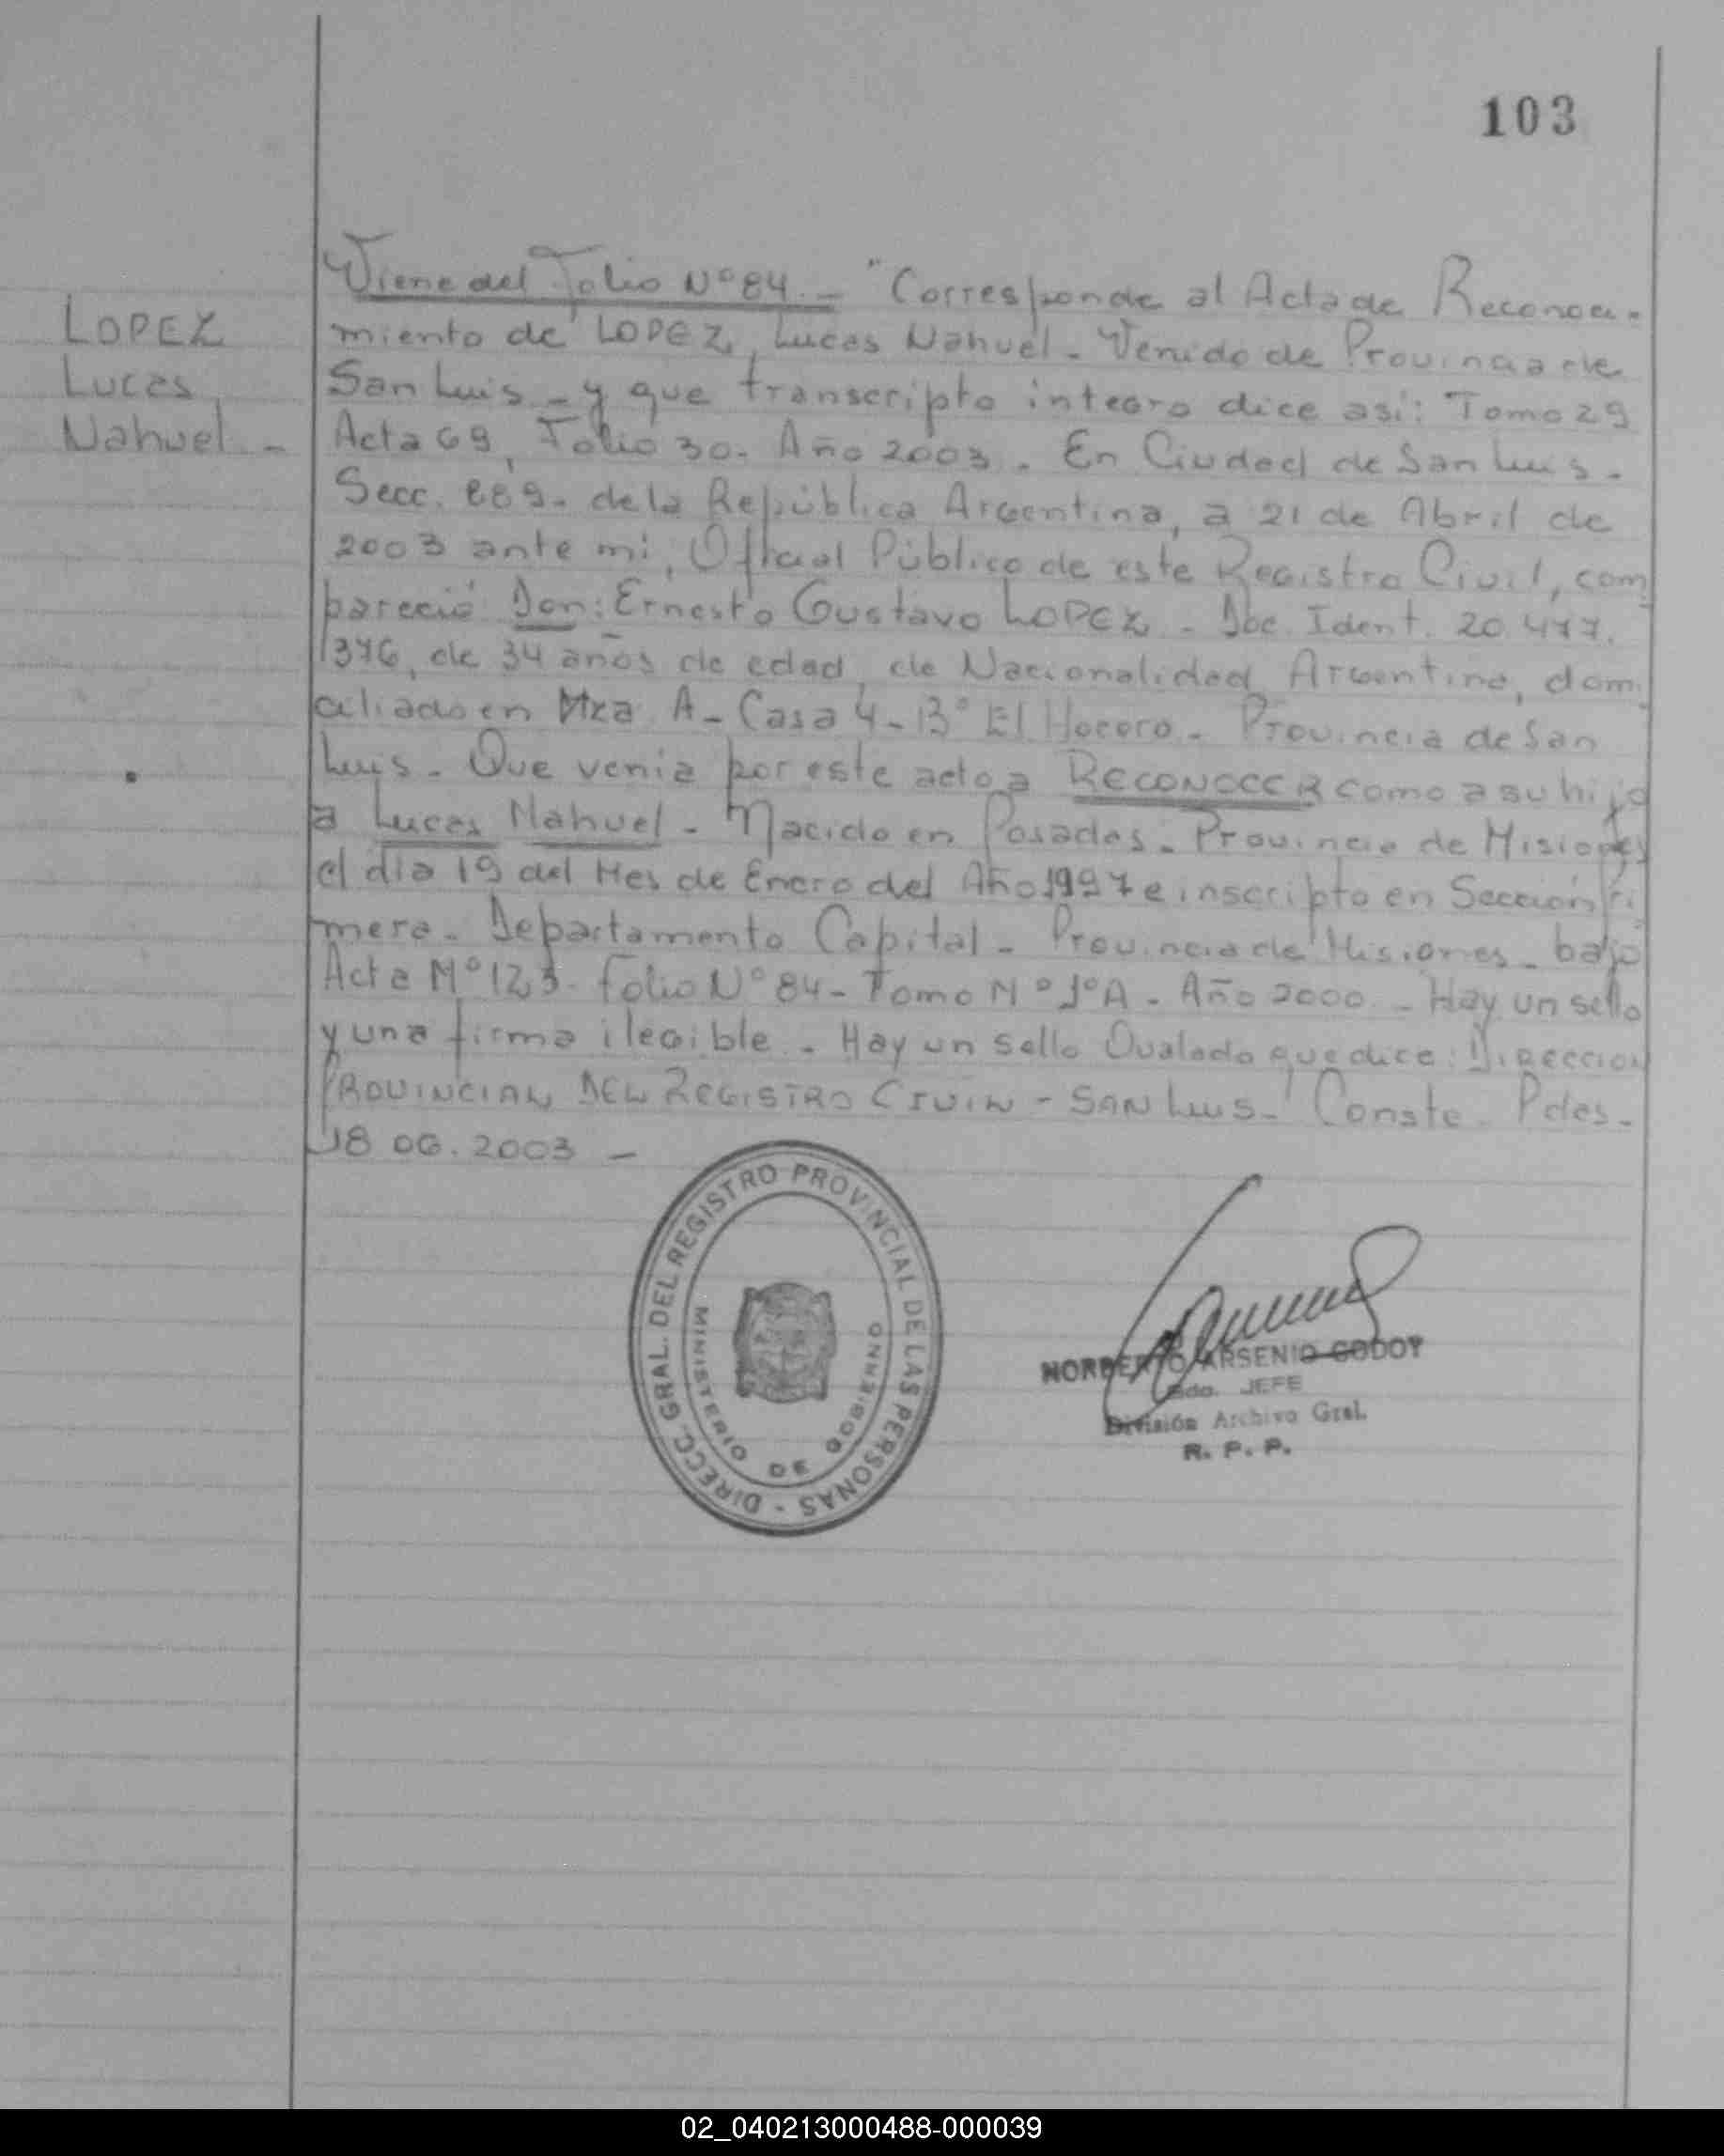 103
LOPEZ
Lucas
Nahuel -
Viene del Folio Nº 84.- "Corresponde al Acta de Reconoci-
miento de LOPEZ, Lucas Nahuel - Venido de Provincia de
San Luis - y que transcripto integro dice así: Tomo 29
Acta 69, Folio 30. Año 2003. En Ciudad de San Luis -
Secc. 889. de la República Argentina, a 21 de Abril de
2003 ante mi, Oficial Público de este Registro Civil, com
pareció Don: Ernesto Gustavo LOPEZ - Doc. Ident. 20.477.
376, de 34 años de edad, de Nacionalidad Argentina, dom
ciliado en Mza A - Casa 4 - Bº El - Provincia de San
Luis - Que venia por este acto a RECONOCER como a su hijo
a Lucas Nahuel - Nacido en Posadas - Provincia de Misiones
el dia 19 del Mes de Enero del Año 1997 e inscripto en Sección Pri
mera - Departamento Capital - Provincia de Misiones - bajo
Acta Nº 123 - Folio Nº 84 - Tomo Nº 1º A - Año 2000 - Hay un sello
y una firma ilegible - Hay un sello Ovalado que dice: DIRECCION
PROVINCIAL DEL REGISTRO CIVIL - SAN LUIS - Conste - Pdas -
18 06. 2003 -
DIRECC. GRAL. DEL REGISTRO PROVINCIAL DE LAS PERSONAS -
MINISTERIO DE GOBIERNO
NORBERTO ARSENIO GODOY
JEFE
División Archivo Gral.
R. P. P.
02_040213000488-000039